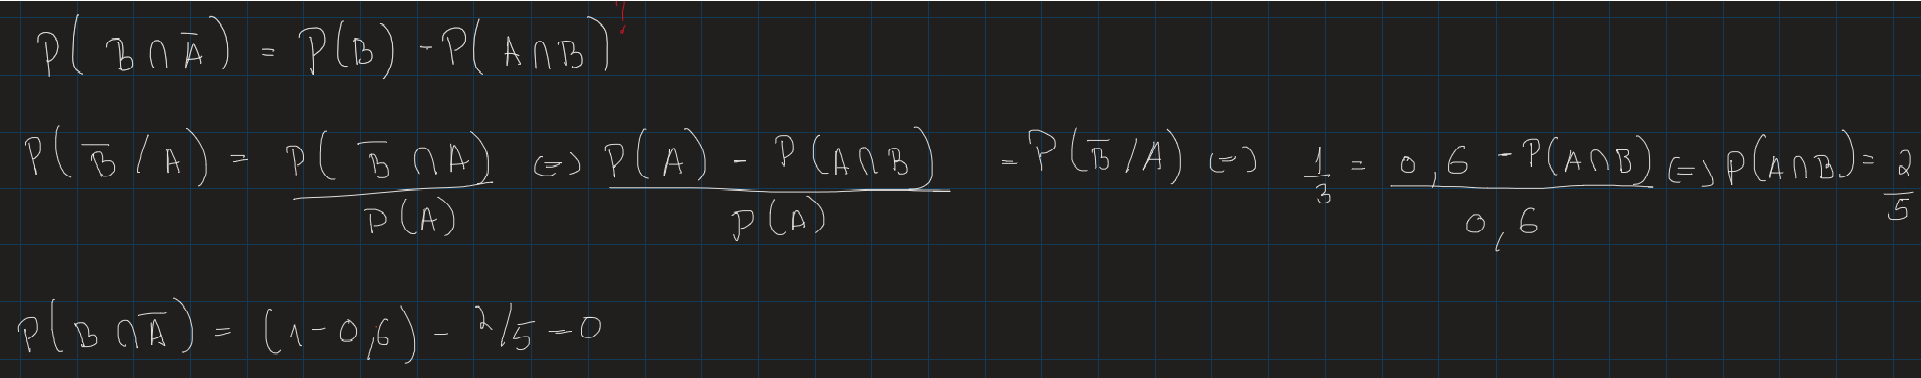 P(B∩A̅) = P(B) - P(A∩B)
P(B̅/A) = P(B̅∩A)/P(A) (=) P(A) - P(A∩B)/P(A) = P(B̅/A) (=) 1/3 = 0,6 - P(A∩B)/0,6 (=) P(A∩B) = 2/5
P(B∩A̅) = (1-0,6) - 2/5 = 0